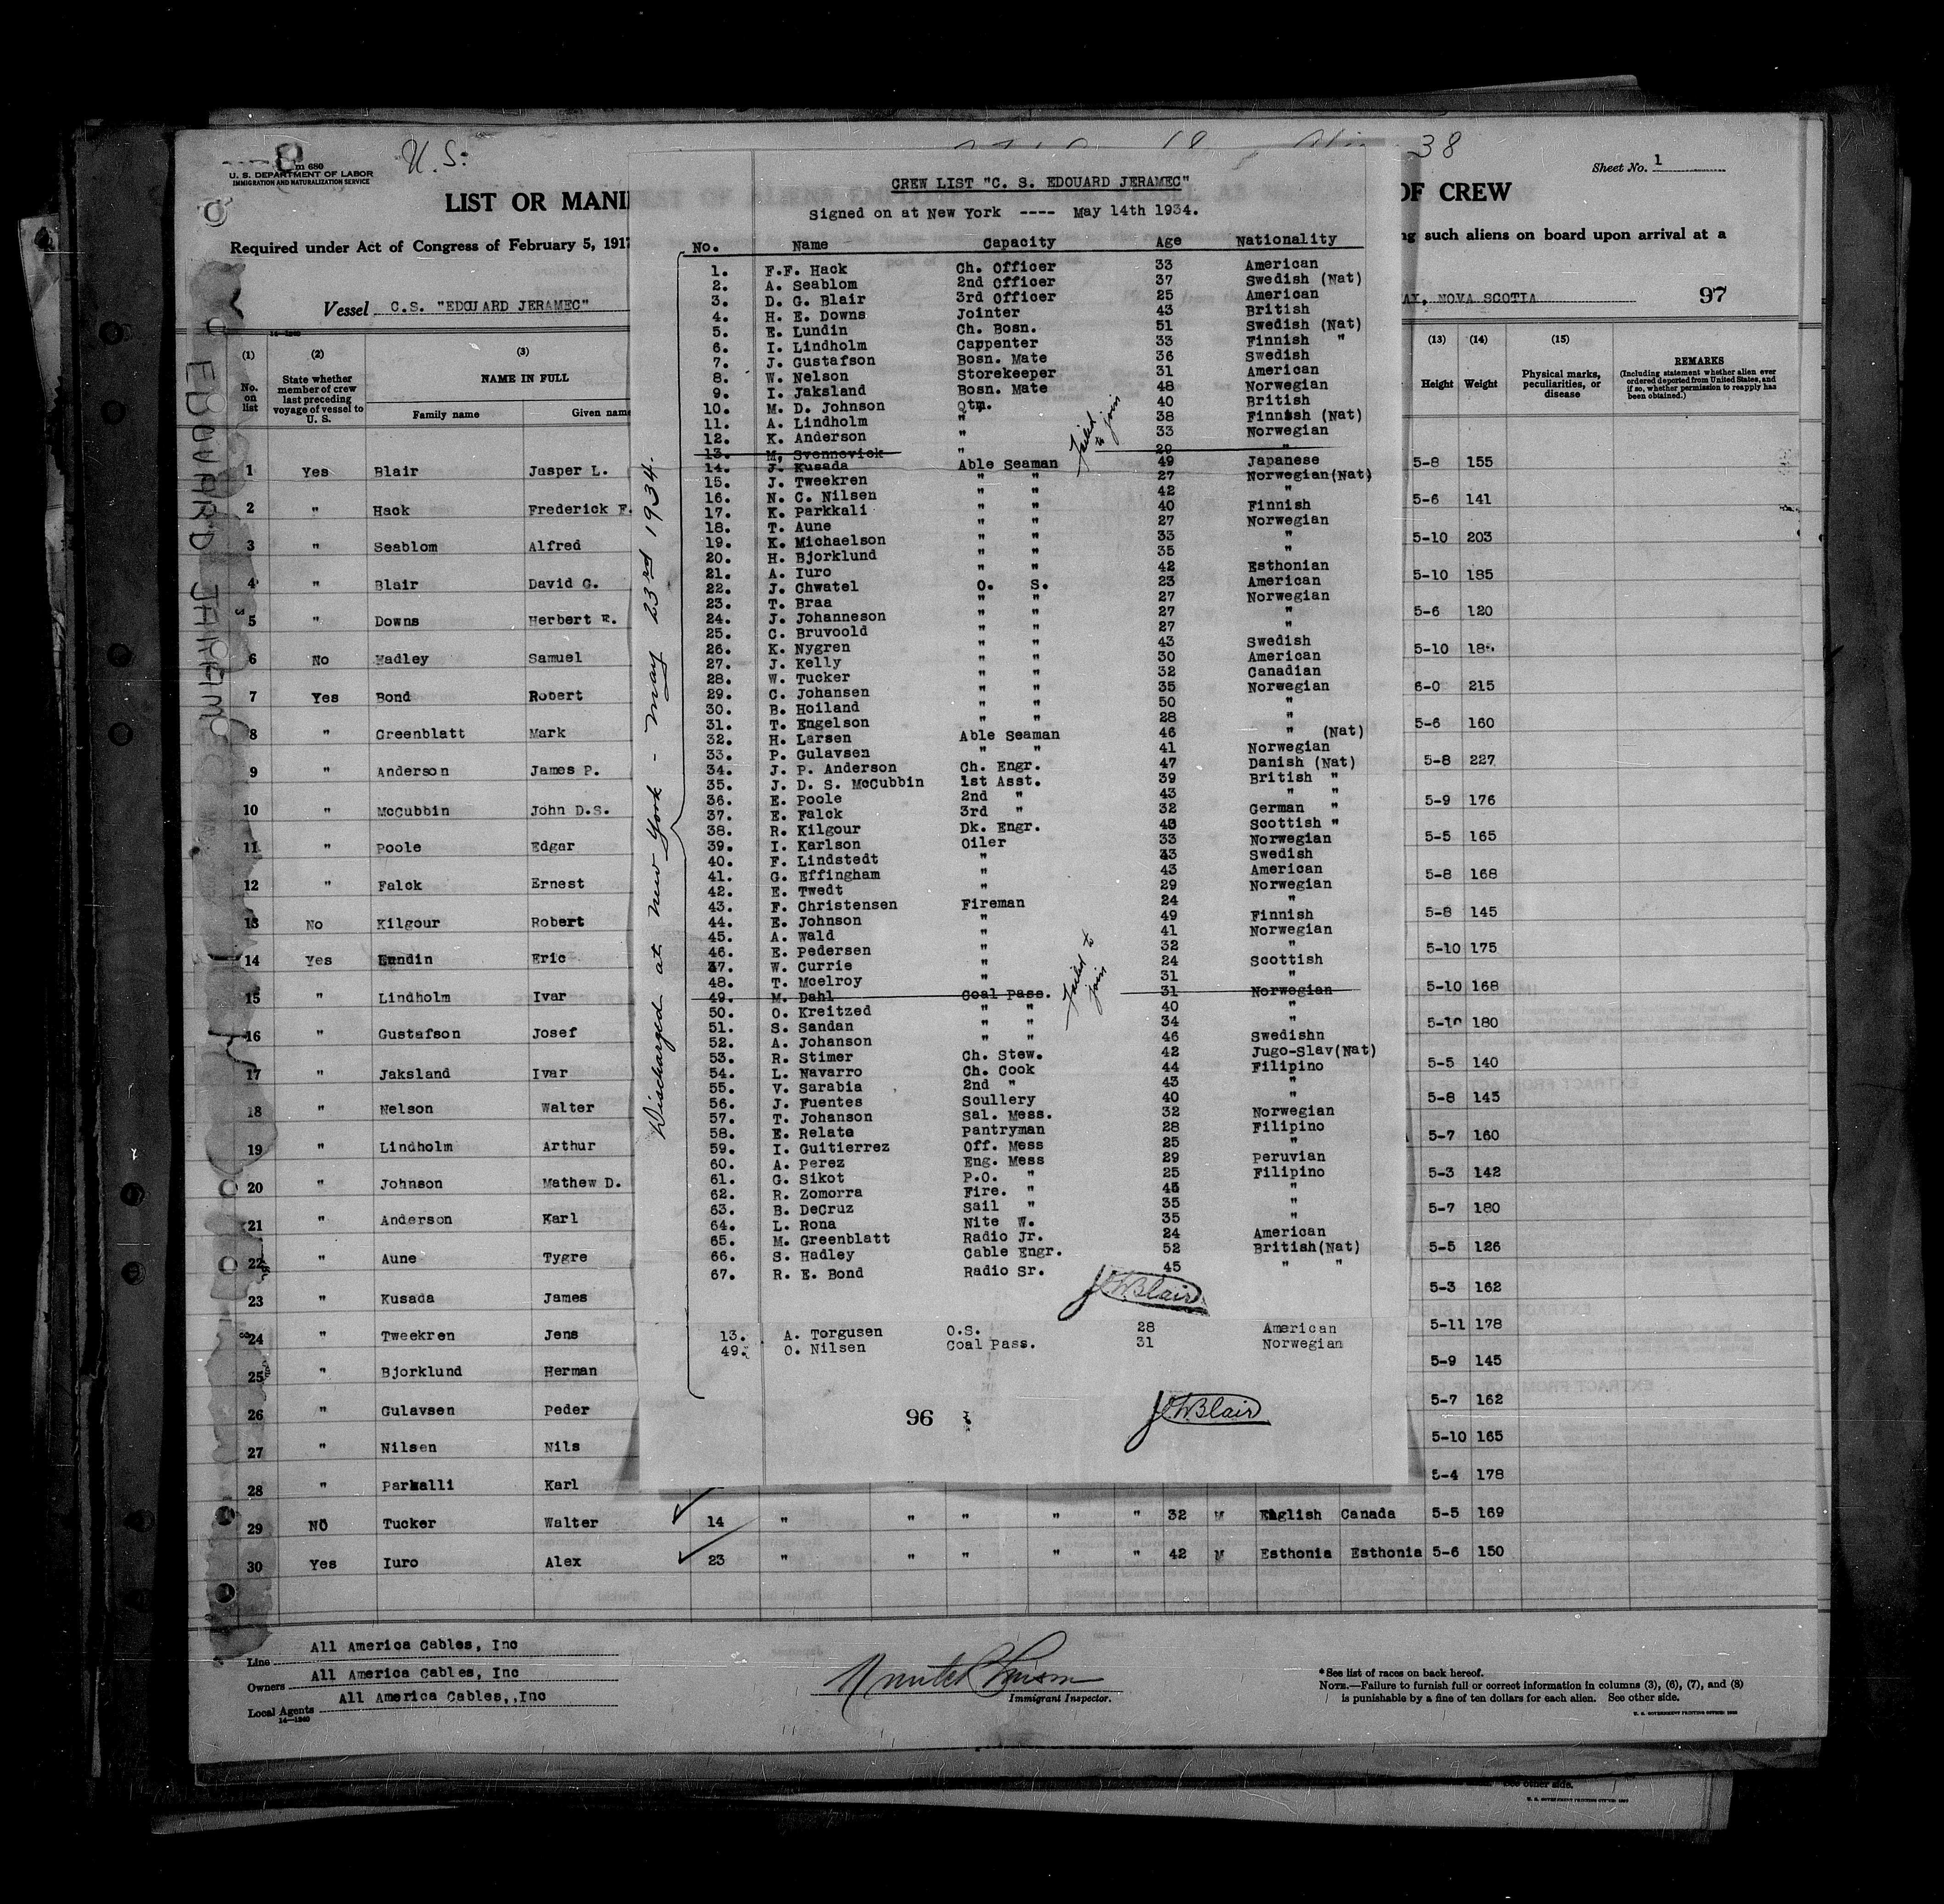 U.S.
38
Sheet No. 1
U. S. DEPARTMENT OF LABOR
IMMIGRATION AND NATURALIZATION SERVICE
LIST OR MANI
OF CREW
Required under Act of Congress of February 5, 1917
such aliens on board upon arrival at a
Vessel C.S. "EDOUARD JERAMEC"
NOVA SCOTIA 97
(1) (2) (3) (13) (14) (15)
No. on list
State whether member of crew last preceding voyage of vessel to U. S.
NAME IN FULL
Family name Given name
Height Weight
Physical marks, peculiarities, or disease
REMARKS
(Including statement whether alien ever ordered deported from United States, and if so, whether permission to reapply has been obtained.)
1 Yes Blair Jasper L. 5-8 155
2 " Hack Frederick F. 5-6 141
3 " Seablom Alfred 5-10 203
4 " Blair David G. 5-10 185
5 " Downs Herbert E. 5-6 120
6 No Hadley Samuel 5-10
7 Yes Bond Robert 6-0 215
8 " Greenblatt Mark 5-6 160
9 " Anderson James P. 5-8 227
10 " McCubbin John D.S. 5-9 176
11 " Poole Edgar 5-5 165
12 " Falck Ernest 5-8 168
13 No Kilgour Robert 5-8 145
14 Yes Lundin Eric 5-10 175
15 " Lindholm Ivar 5-10 168
16 " Gustafson Josef 5-10 180
17 " Jaksland Ivar 5-5 140
18 " Nelson Walter 5-8 145
19 " Lindholm Arthur 5-7 160
20 " Johnson Mathew D. 5-3 142
21 " Anderson Karl 5-7 180
22 " Aune Tygre 5-5 126
23 " Kusada James 5-3 162
24 " Tweekren Jens 5-11 178
25 " Bjorklund Herman 5-9 145
26 " Gulavsen Peder 5-7 162
27 " Nilsen Nils 5-10 165
28 " Parkalli Karl 5-4 178
29 No Tucker Walter 14 " " " " " 32 M English Canada 5-5 169
30 Yes Iuro Alex 23 " " " " " 42 M Esthonia Esthonia 5-6 150
CREW LIST "C. S. EDOUARD JERAMEC"
Signed on at New York ---- May 14th 1934.
No. Name Capacity Age Nationality
1. F.F. Hack Ch. Officer 33 American
2. A. Seablom 2nd Officer 37 Swedish (Nat)
3. D. G. Blair 3rd Officer 25 American
4. H. E. Downs Jointer 43 British
5. E. Lundin Ch. Bosn. 51 Swedish (Nat)
6. I. Lindholm Carpenter 33 Finnish "
7. J. Gustafson Bosn. Mate 36 Swedish
8. W. Nelson Storekeeper 31 American
9. I. Jaksland Bosn. Mate 48 Norwegian
10. M. D. Johnson Qtm. 40 British
11. A. Lindholm " 38 Finnish (Nat)
12. K. Anderson " 33 Norwegian
13. M. Svennevick " 29 "
Failed to join
14. J. Kusada Able Seaman 49 Japanese
15. J. Tweekren " " 27 Norwegian(Nat)
16. N. C. Nilsen " " 42 "
17. K. Parkkali " " 40 Finnish
18. T. Aune " " 27 Norwegian
19. K. Michaelson " " 33 "
20. H. Bjorklund " " 35 "
21. A. Iuro " " 42 Esthonian
22. J. Chwatel O. S. 23 American
23. T. Braa " " 27 Norwegian
24. J. Johanneson " " 27 "
25. C. Bruvoold " " 27 "
26. K. Nygren " " 43 Swedish
27. J. Kelly " " 30 American
28. W. Tucker " " 32 Canadian
29. C. Johansen " " 35 Norwegian
30. B. Hoiland " " 50 "
31. T. Engelson " " 28 "
32. H. Larsen Able Seaman 46 " (Nat)
33. P. Gulavsen " " 41 Norwegian
34. J. P. Anderson Ch. Engr. 47 Danish (Nat)
35. J. D. S. McCubbin 1st Asst. 39 British "
36. E. Poole 2nd " 43 " "
37. E. Falck 3rd " 32 German "
38. R. Kilgour Dk. Engr. 43 Scottish "
39. I. Karlson Oiler 33 Norwegian
40. F. Lindstedt " 43 Swedish
41. G. Effingham " 43 American
42. E. Twedt " 29 Norwegian
43. F. Christensen Fireman 24 "
44. E. Johnson " 49 Finnish
45. A. Wald " 41 Norwegian
46. E. Pedersen " 32 "
47. W. Currie " 24 Scottish
48. T. Mcelroy " 31 "
49. M. Dahl Coal Pass. 31 Norwegian
Failed to join
50. O. Kreitzed " " 40 "
51. S. Sandan " " 34 "
52. A. Johanson " " 46 Swedishn
53. R. Stimer Ch. Stew. 42 Jugo-Slav(Nat)
54. L. Navarro Ch. Cook 44 Filipino
55. V. Sarabia 2nd " 43 "
56. J. Fuentes Scullery 40 "
57. T. Johanson Sal. Mess. 32 Norwegian
58. E. Relata Pantryman 28 Filipino
59. I. Guitierrez Off. Mess 25 "
60. A. Perez Eng. Mess 29 Peruvian
61. G. Sikot P.O. " 25 Filipino
62. R. Zomorra Fire. " 45 "
63. B. DeCruz Sail " 35 "
64. L. Rona Nite W. 35 "
65. M. Greenblatt Radio Jr. 24 American
66. S. Hadley Cable Engr. 52 British(Nat)
67. R. E. Bond Radio Sr. 45 " "
JLBlair
13. A. Torgusen O.S. 28 American
49. O. Nilsen Coal Pass. 31 Norwegian
96
JLBlair
Discharged at New York - May 23rd 1934.
Line All America Cables, Inc
Owners All America Cables, Inc
Local Agents All America Cables,,Inc
14—1240
Immigrant Inspector.
*See list of races on back hereof.
NOTE.—Failure to furnish full or correct information in columns (3), (6), (7), and (8)
is punishable by a fine of ten dollars for each alien. See other side.
U. S. GOVERNMENT PRINTING OFFICE:
See other side.